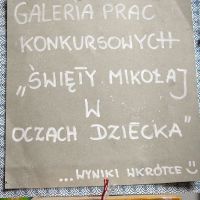 GALERIA PRAC
KONKURSOWYCH
„ŚWIĘTY MIKOŁAJ
W
OCZACH DZIECKA"
...WYNIKI WKRÓTCE